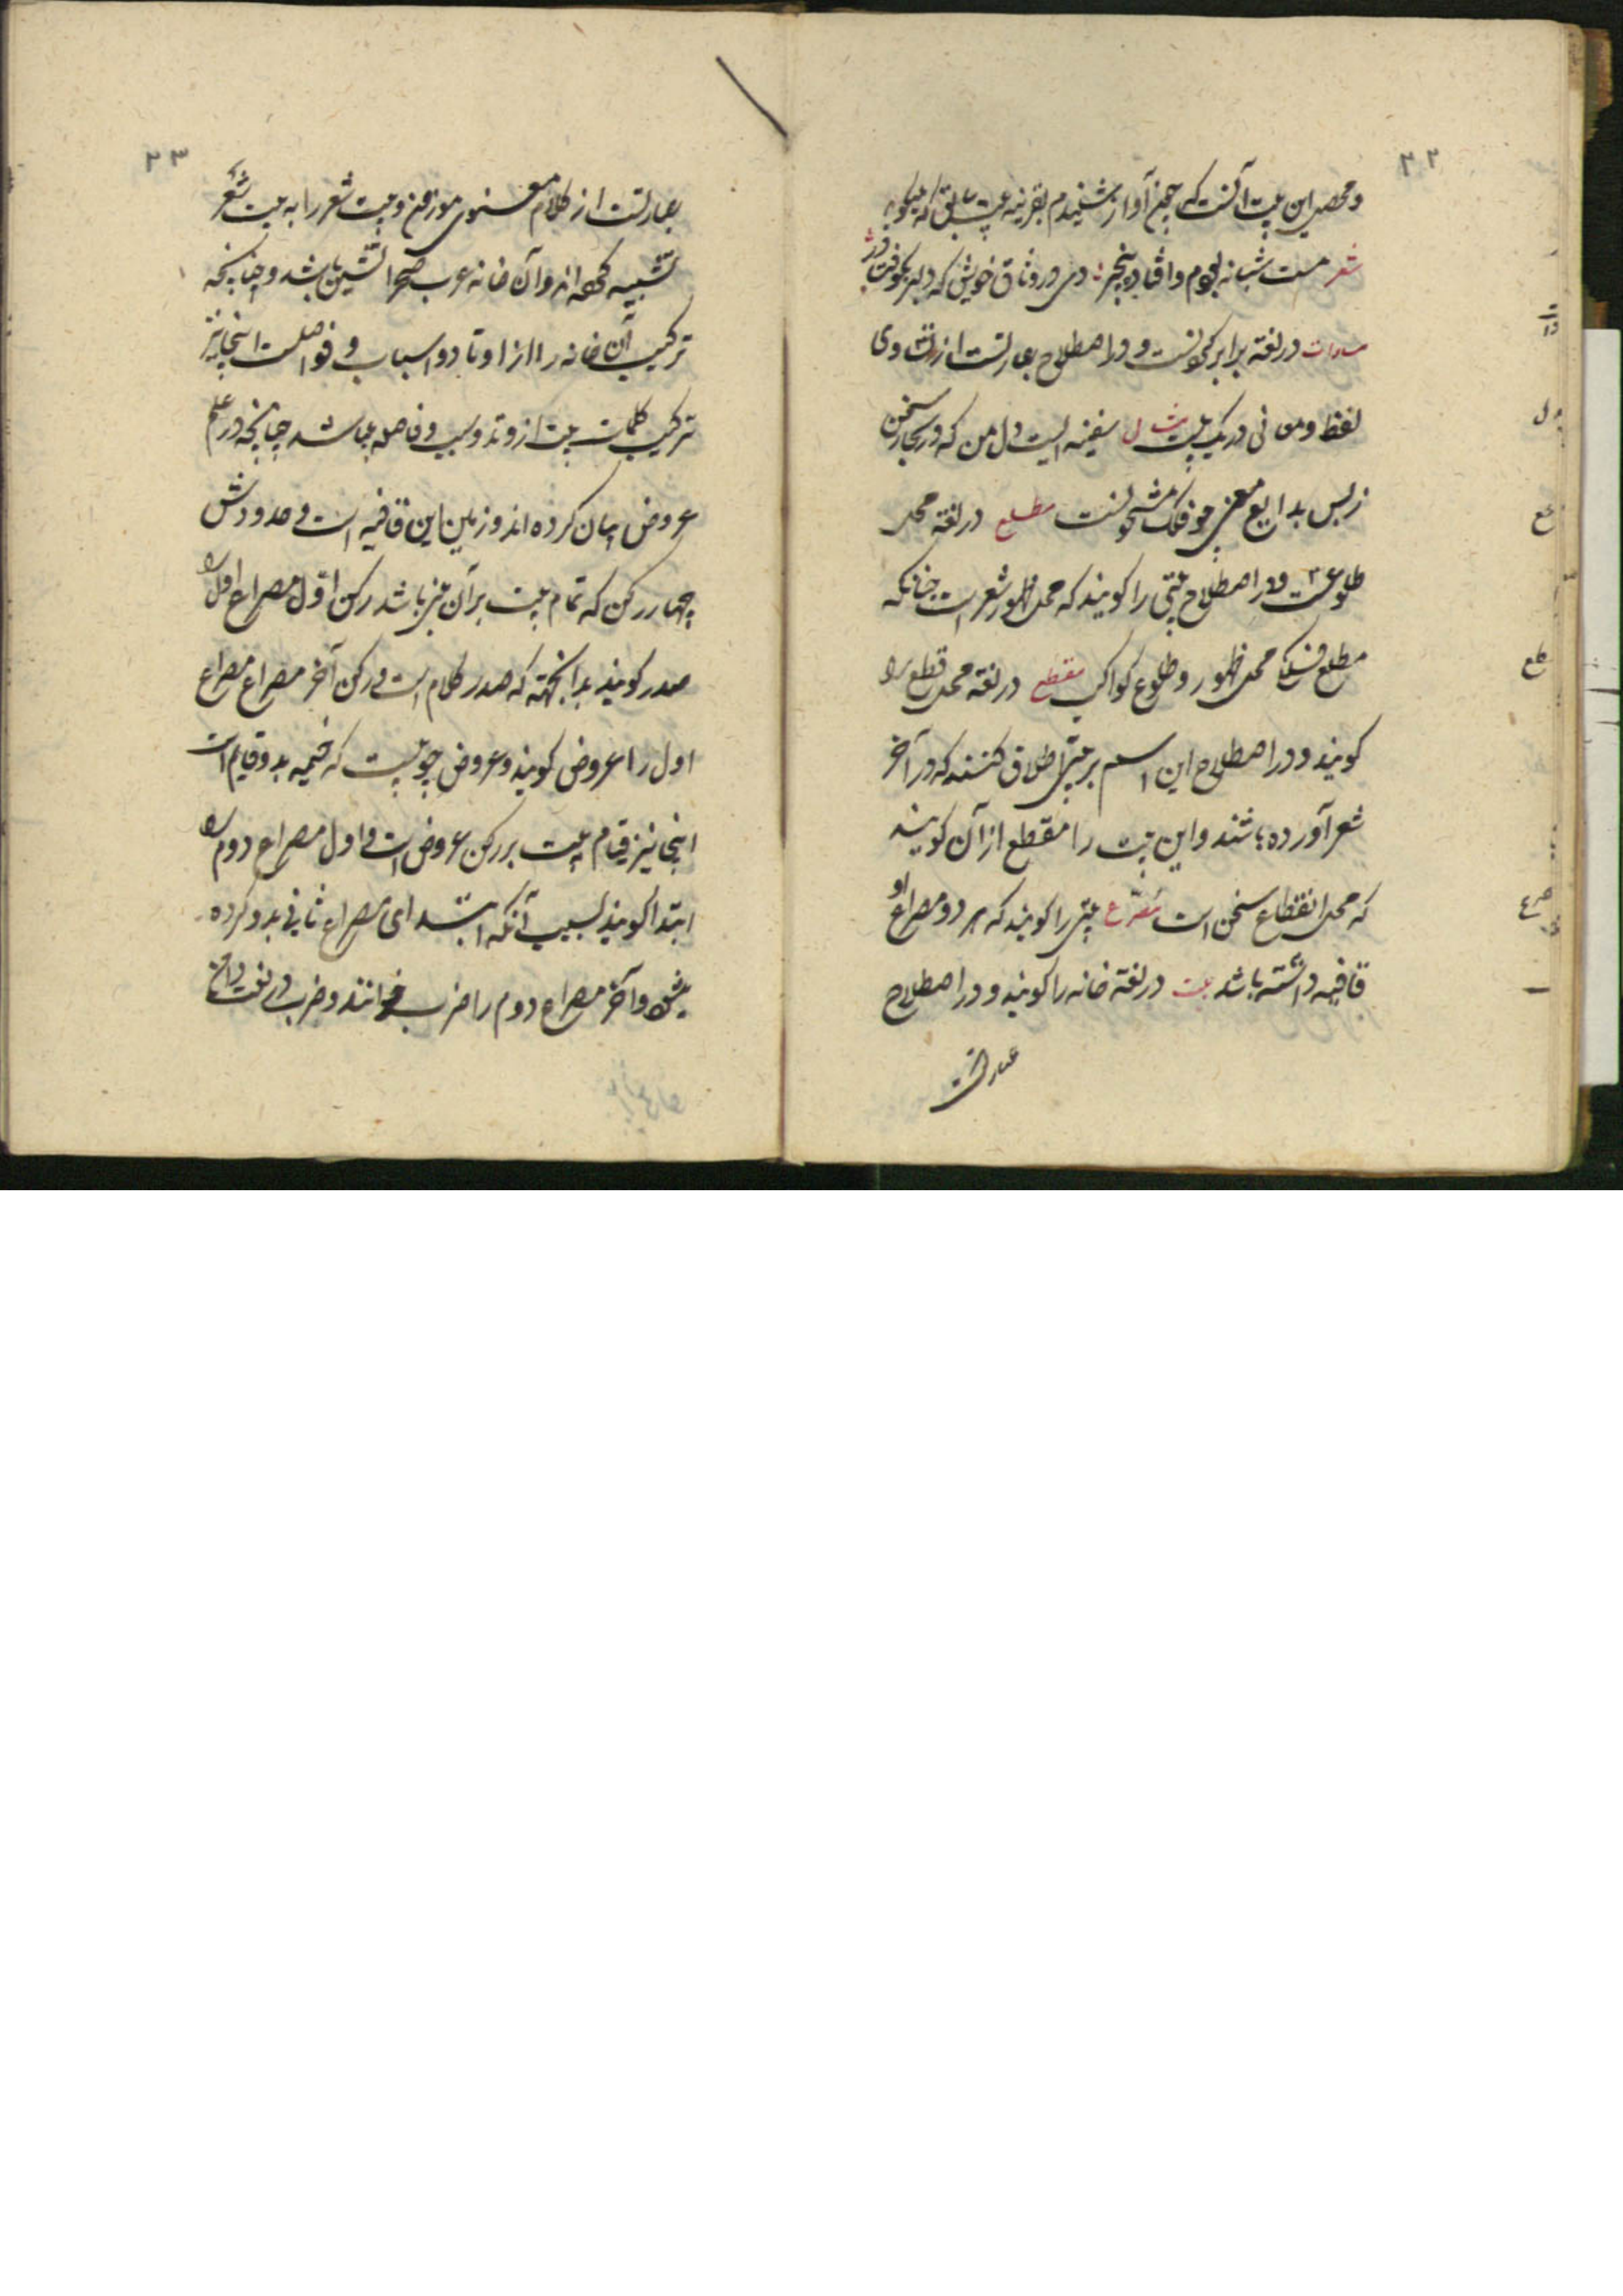 ۲۲
و محصل این بیت آنست که چنین آواز شنیدم بقرینه بیت سابق که میگوید
شعر مست شبانه بودم و افتاده بیخبر دی در وثاق خویش که دلبر بکوفت در
مساوات در لغة برابر کردنست و در اصطلاح عبارتست از تساوی
لفظ و معانی در یک بیت مثال سفینه ایست دل من که در بحار سخن
ز بس بدایع معنی چو فلک مشحونست مطلع در لغة محل
طلوعست و در اصطلاح بیتی را کویند که محل ظهور شعر است چنانکه
مطلع فلک محل ظهور و طلوع کواکب مقطع در لغة محل قطع را
کویند و در اصطلاح این اسم بر بیتی اطلاق کنند که در آخر
شعر آورده باشند و این بیت را مقطع از آن کویند
که محل انقطاع سخن است مصرع بیتی را کویند که هر دو مصراع او
قافیه داشته باشد بیت در لغة خانه را کویند و در اصطلاح
عبارتست
۲۳
عبارتست از کلام معنوی موزون و بیت شعر را به بیت شعر
تشبیه کرده اند و آن خانه عرب صحرا نشین باشد و چنانچه
ترکیب آن خانه را از اوتاد و اسباب و فواصلست اینجا نیز
ترکیب کلمات بیت از وتد و سبب و فاصله باشد چنانچه در علم
عروض بیان کرده اند و زمین این قافیه است و حدودش
چهار رکن که تمام بیت بر آن مبنی باشد رکن اول مصراع اول را
صدر کویند بدانجهته که صدر کلام است و رکن آخر مصراع
اول را عروض کویند و عروض چوبیست که خیمه بدو قایم است
اینجا نیز قیام بیت بر رکن عروض است و اول مصراع دوم را
ابتدا کویند بسبب آنکه ابتدای مصراع ثانی بدو کرده
میشود و آخر مصراع دوم را ضرب خوانند و ضرب در لغت